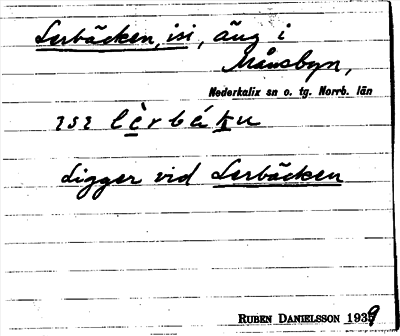 Lerbäcken, isi, äng i
Månsbyn,
Nederkalix sn o. tg. Norrb. län
ɪsɪ lèrbáku
Ligger vid Lerbäcken
RUBEN DANIELSSON 1939